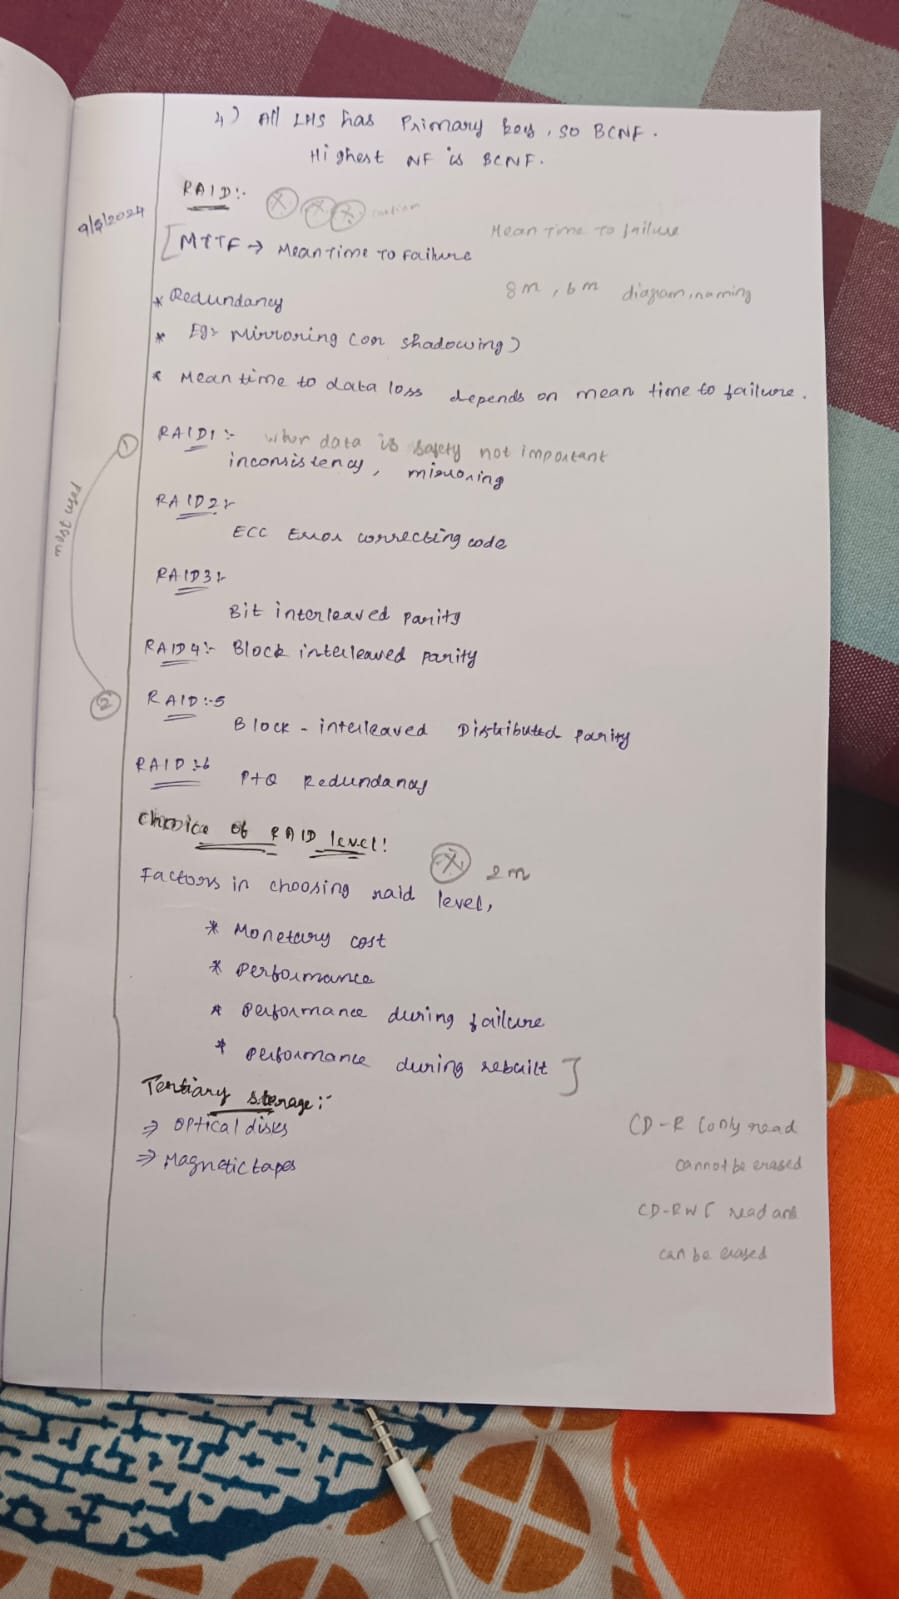 4) All LHS has Primary key, so BCNF.
Highest NF is BCNF.
9/9/2024
RAID:-
[MTTF → Mean Time To Failure
Mean Time To failure
8m, 6m diagram, naming
* Redundancy
* Eg:- Mirroring (or shadowing)
* Mean time to data loss depends on mean time to failure.
① RAID1:- when data is safety not important
inconsistency, mirroring
most used
RAID2:-
ECC Error correcting code
RAID3:-
Bit interleaved parity
RAID4:- Block interleaved parity
② RAID:-5
Block - interleaved Distributed parity
RAID:-6 P+Q Redundancy
Choice of RAID level:
2m
Factors in choosing raid level,
* Monetary cost
* Performance
* Performance during failure
* Performance during rebuilt ]
Tertiary storage:-
⇒ Optical disks
⇒ Magnetic tapes
CD-R (only read
cannot be erased
CD-RW [ read and
can be erased